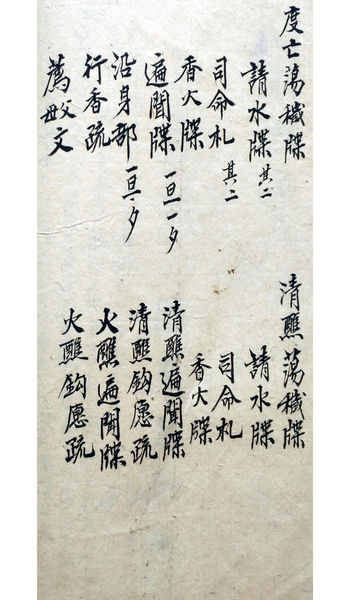 度亡蕩穢牒
請水牒 其二
司命札 其二
香火牒
遍聞牒 一旦一夕
沿身部 一旦一夕
行香疏
薦父母文
清醮蕩穢牒
請水牒
司命札
香火牒
清醮遍聞牒
清醮鈎愿疏
火醮遍聞牒
火醮鈎愿疏